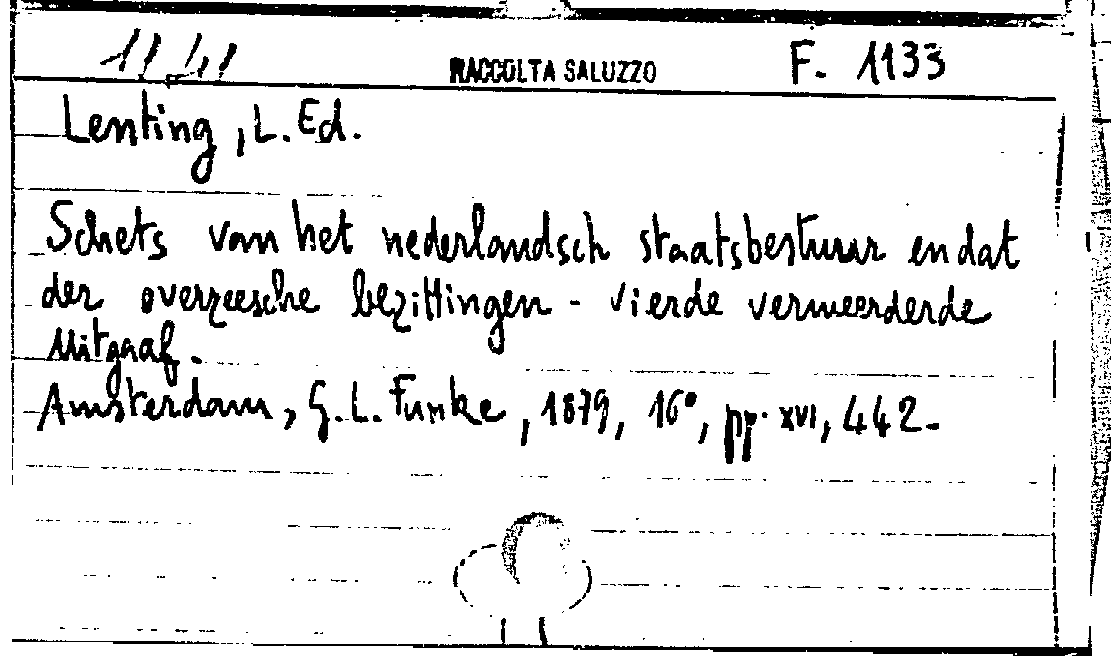 1141 RACCOLTA SALUZZO F. 1133
Lenting, L. Ed.
Schets van het nederlandsch staatsbestuur en dat
der overzeesche bezittingen - vierde vermeerderde
Uitgaaf.
Amsterdam, G. L. Funke, 1879, 16°, pp. XVI, 442.